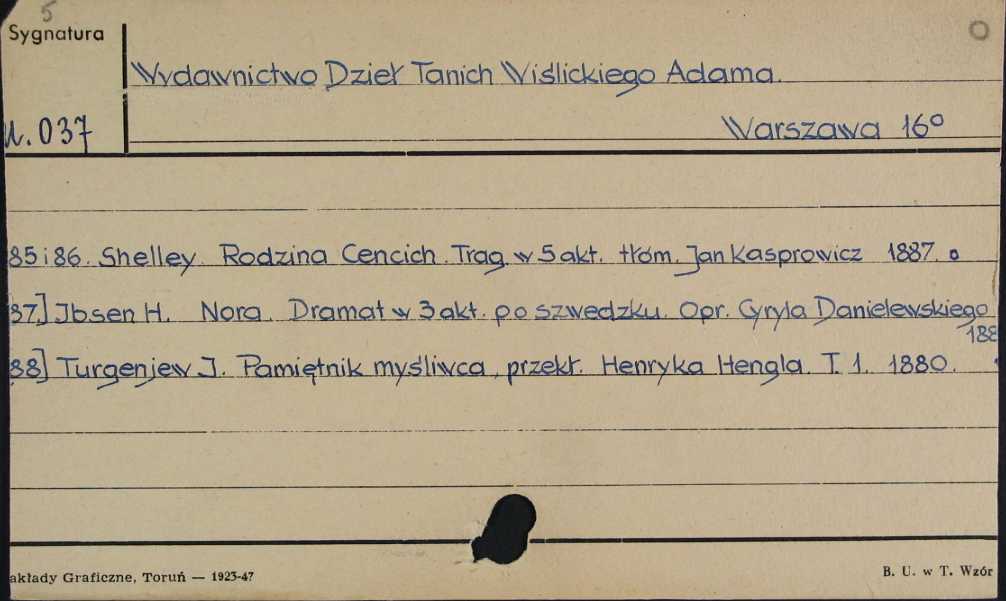 5
Sygnatura
Wydawnictwo Dzieł Tanich Wiślickiego Adama.
u. 037
Warszawa 16°
85 i 86. Shelley. Rodzina Cencich. Trag. w 5 akt. tłóm. Jan Kasprowicz 1887.
87] Jbsen H. Nora. Dramat w 3 akt. po szwedzku. Opr. Cyryla Danielewskiego
188
88] Turgenjew J. Pamiętnik myśliwca, przekł. Henryka Hengla. T. 1. 1880.
akłady Graficzne, Toruń — 1923-47
B. U. w T. Wzór